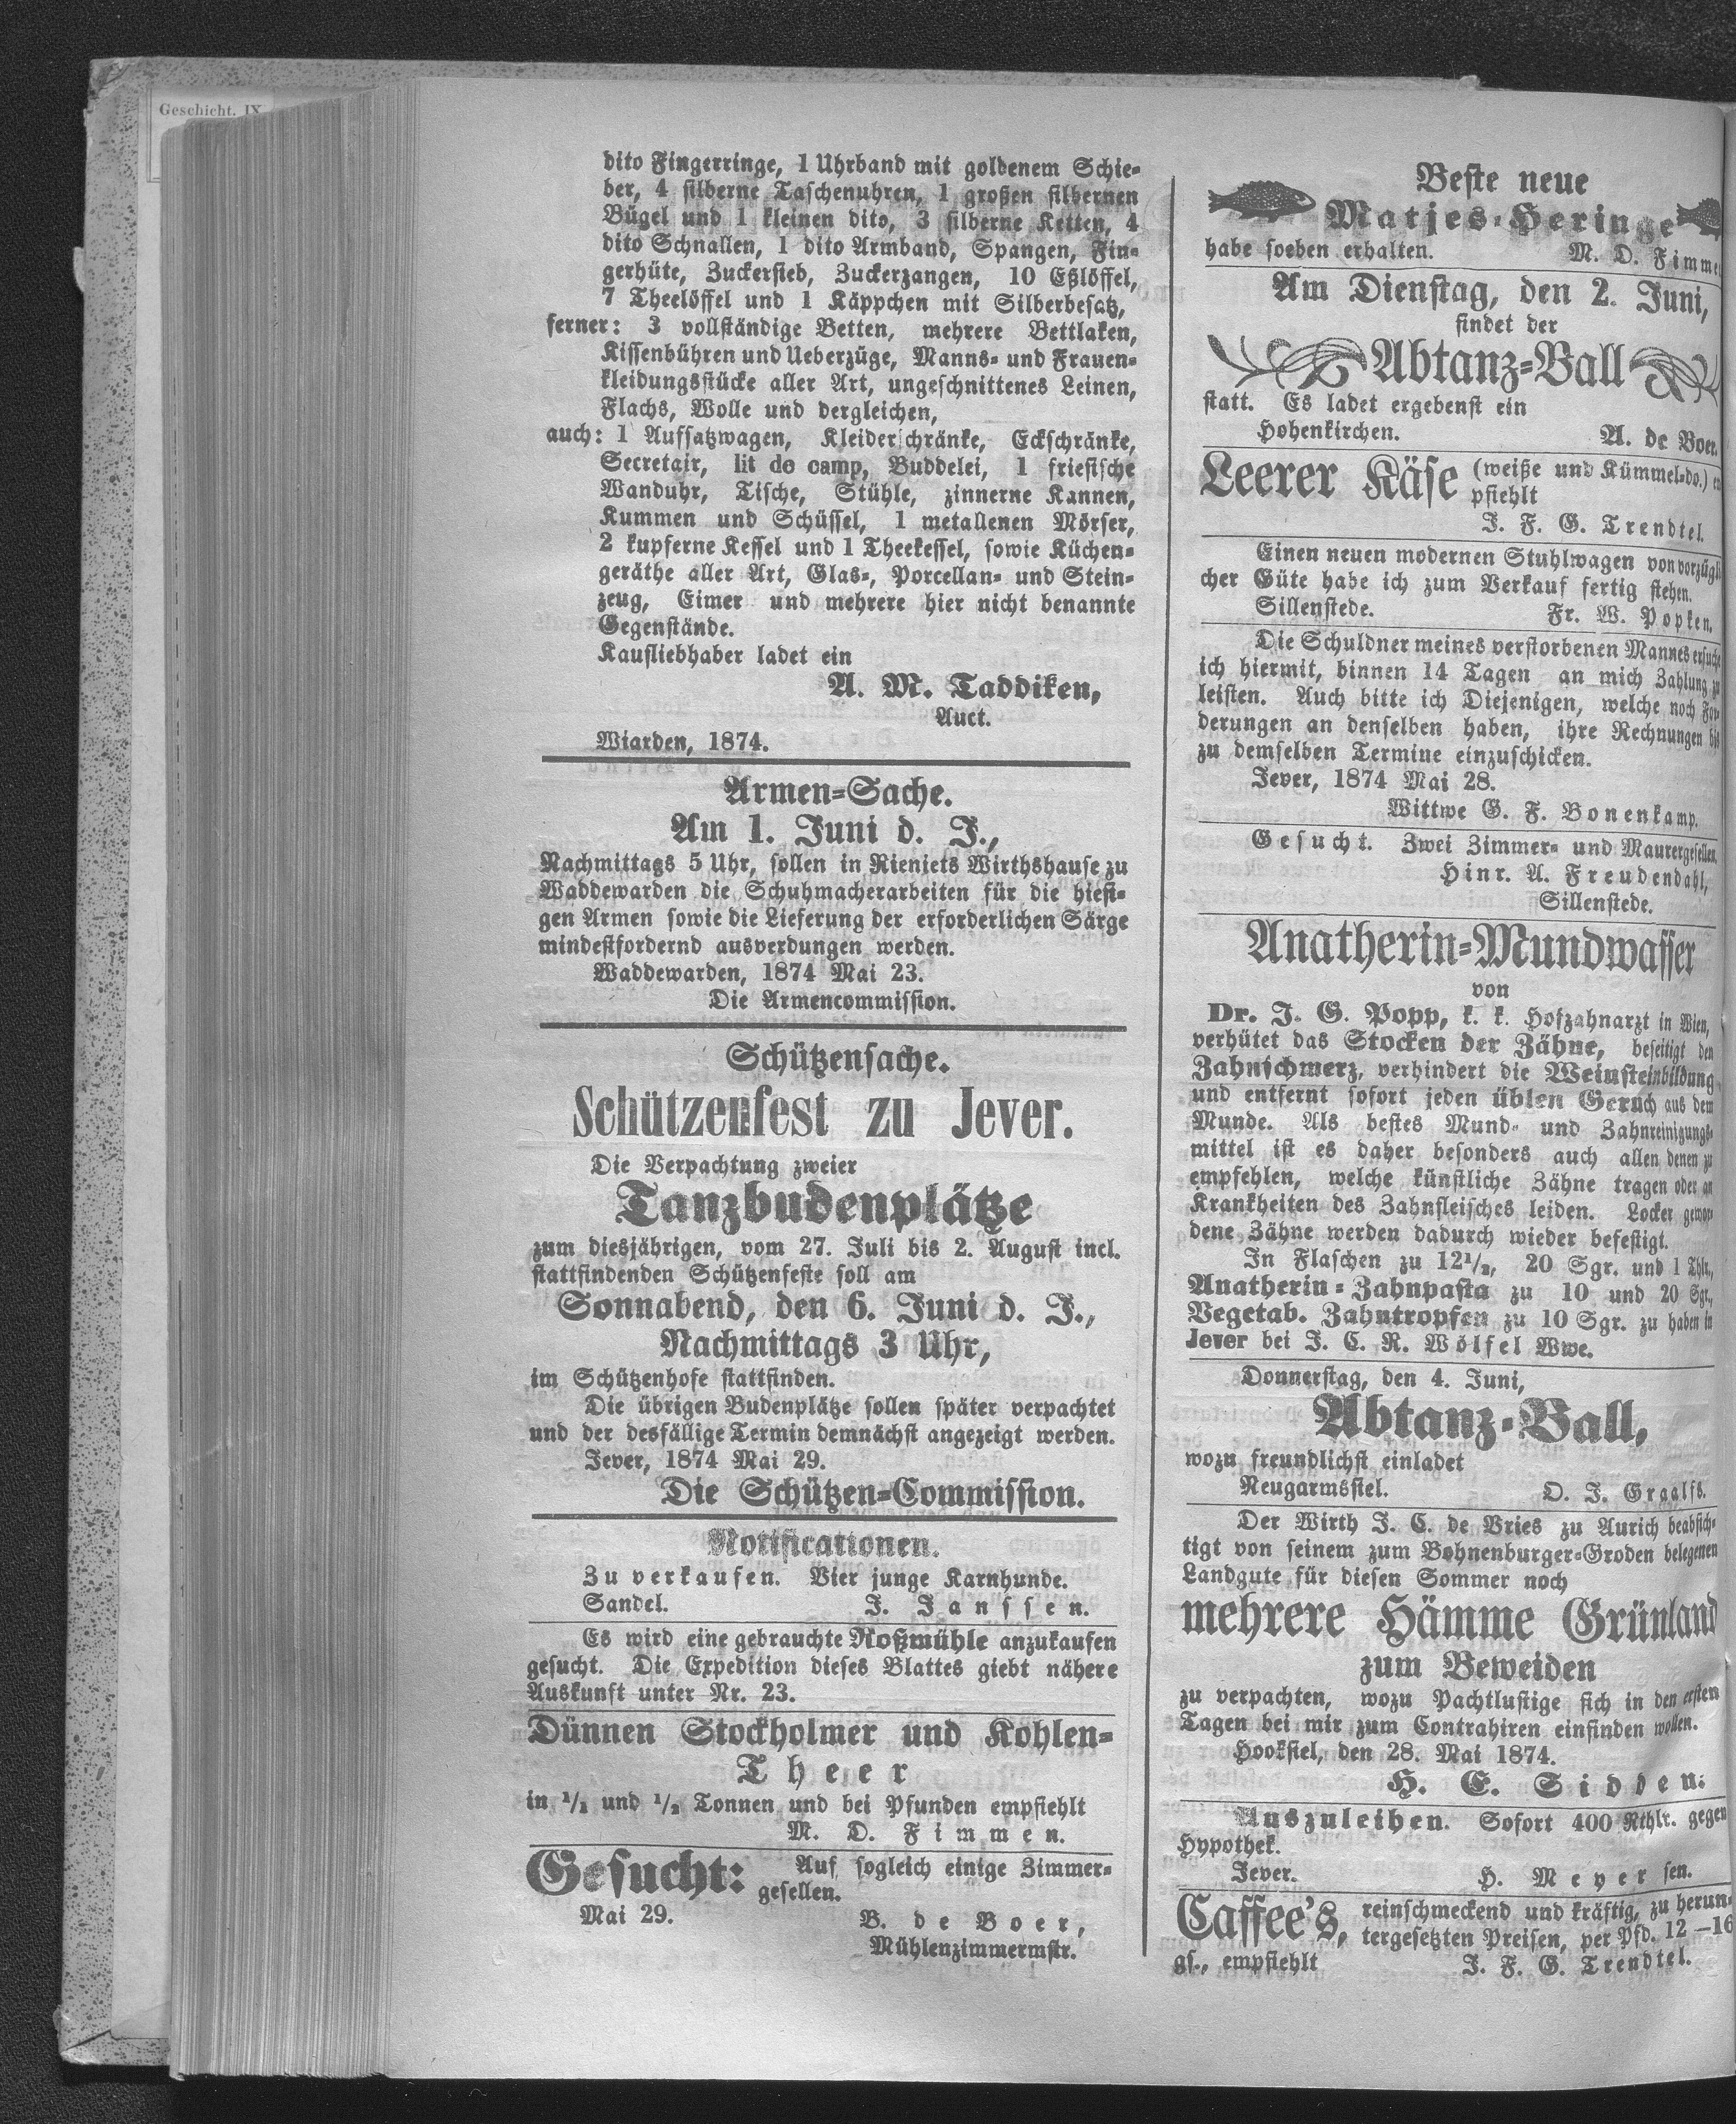 Geschicht. IX
dito Fingerringe, 1 Uhrband mit goldenem Schie-
ber, 4 silberne Taschenuhren, 1 großen silbernen
Bügel und 1 kleinen dito, 3 silberne Ketten, 4
dito Schnallen, 1 dito Armband, Spangen, Fin-
gerhüte, Zuckersieb, Zuckerzangen, 10 Eßlöffel,
7 Theelöffel und 1 Käppchen mit Silberbesatz,
ferner: 3 vollständige Betten, mehrere Bettlaken,
Kissenbühren und Ueberzüge, Manns- und Frauen-
kleidungsstücke aller Art, ungeschnittenes Leinen,
Flachs, Wolle und dergleichen,
auch: 1 Aufsatzwagen, Kleiderschränke, Eckschränke,
Secretair, lit de camp, Buddelei, 1 friesische
Wanduhr, Tische, Stühle, zinnerne Kannen,
Kummen und Schüssel, 1 metallenen Mörser,
2 kupferne Kessel und 1 Theekessel, sowie Küchen-
geräthe aller Art, Glas-, Porcellan- und Stein-
zeug, Eimer und mehrere hier nicht benannte
Gegenstände.
Kaufliebhaber ladet ein
A. M. Taddiken,
Auct.
Wiarden, 1874.
Armen-Sache.
Am 1. Juni d. J.,
Nachmittags 5 Uhr, sollen in Rieniets Wirthshause zu
Waddewarden die Schuhmacherarbeiten für die hiesi-
gen Armen sowie die Lieferung der erforderlichen Särge
mindestfordernd ausverdungen werden.
Waddewarden, 1874 Mai 23.
Die Armencommission.
Schützensache.
Schützenfest zu Jever.
Die Verpachtung zweier
Tanzbudenplätze
zum diesjährigen, vom 27. Juli bis 2. August incl.
stattfindenden Schützenfeste soll am
Sonnabend, den 6. Juni d. J.,
Nachmittags 3 Uhr,
im Schützenhofe stattfinden.
Die übrigen Budenplätze sollen später verpachtet
und der desfällige Termin demnächst angezeigt werden.
Jever, 1874 Mai 29.
Die Schützen-Commission.
Notificationen.
Zu verkaufen. Vier junge Karnhunde.
Sandel. J. Janssen.
Es wird eine gebrauchte Roßmühle anzukaufen
gesucht. Die Expedition dieses Blattes giebt nähere
Auskunft unter Nr. 23.
Dünnen Stockholmer und Kohlen-
Theer
in 1/1 und 1/2 Tonnen und bei Pfunden empfiehlt
M. D. Fimmen.
Gesucht: Auf sogleich einige Zimmer-
gesellen.
Mai 29. B. de Boer,
Mühlenzimmermstr.
Beste neue
Matjes-Heringe
habe soeben erhalten. M. D. Fimme
Am Dienstag, den 2. Juni,
findet der
Abtanz-Ball
statt. Es ladet ergebenst ein
Hohenkirchen. A. de Boer.
Leerer Käse (weiße und Kümmel-do.) em
pfiehlt
J. F. G. Trendtel.
Einen neuen modernen Stuhlwagen von vorzügli
cher Güte habe ich zum Verkauf fertig stehen.
Sillenstede. Fr. W. Popken.
Die Schuldner meines verstorbenen Mannes ersuche
ich hiermit, binnen 14 Tagen an mich Zahlung zu
leisten. Auch bitte ich Diejenigen, welche noch For
derungen an denselben haben, ihre Rechnungen bis
zu demselben Termine einzuschicken.
Jever, 1874 Mai 28.
Wittwe G. F. Bonenkamp.
Gesucht. Zwei Zimmer- und Maurergesellen.
Hinr. A. Freudendahl,
Sillenstede.
Anatherin-Mundwasser
von
Dr. J. G. Popp, k. k. Hofzahnarzt in Wien,
verhütet das Stocken der Zähne, beseitigt den
Zahnschmerz, verhindert die Weinsteinbildung
und entfernt sofort jeden üblen Geruch aus dem
Munde. Als bestes Mund- und Zahnreinigungs-
mittel ist es daher besonders auch allen denen zu
empfehlen, welche künstliche Zähne tragen oder an
Krankheiten des Zahnfleisches leiden. Locker gewor-
dene Zähne werden dadurch wieder befestigt.
In Flaschen zu 12 1/2, 20 Sgr. und 1 Thlr.,
Anatherin-Zahnpasta zu 10 und 20 Sgr.,
Vegetab. Zahntropfen zu 10 Sgr. zu haben in
Jever bei J. C. R. Wölfel Wwe.
Donnerstag, den 4. Juni,
Abtanz-Ball,
wozu freundlichst einladet
Neugarmssiel. O. J. Graalfs.
Der Wirth J. C. de Vries zu Aurich beabsich-
tigt von seinem zum Bohnenburger-Groden belegenen
Landgute für diesen Sommer noch
mehrere Hämme Grünland
zum Beweiden
zu verpachten, wozu Pachtlustige sich in den ersten
Tagen bei mir zum Contrahiren einfinden wollen.
Hooksiel, den 28. Mai 1874.
H. E. Sidden.
Auszuleihen. Sofort 400 Rthlr. gegen
Hypothek.
Jever. H. Meyer sen.
Caffee's, reinschmeckend und kräftig, zu herun-
tergesetzten Preisen, per Pfd. 12–16
gs., empfiehlt J. F. G. Trendtel.